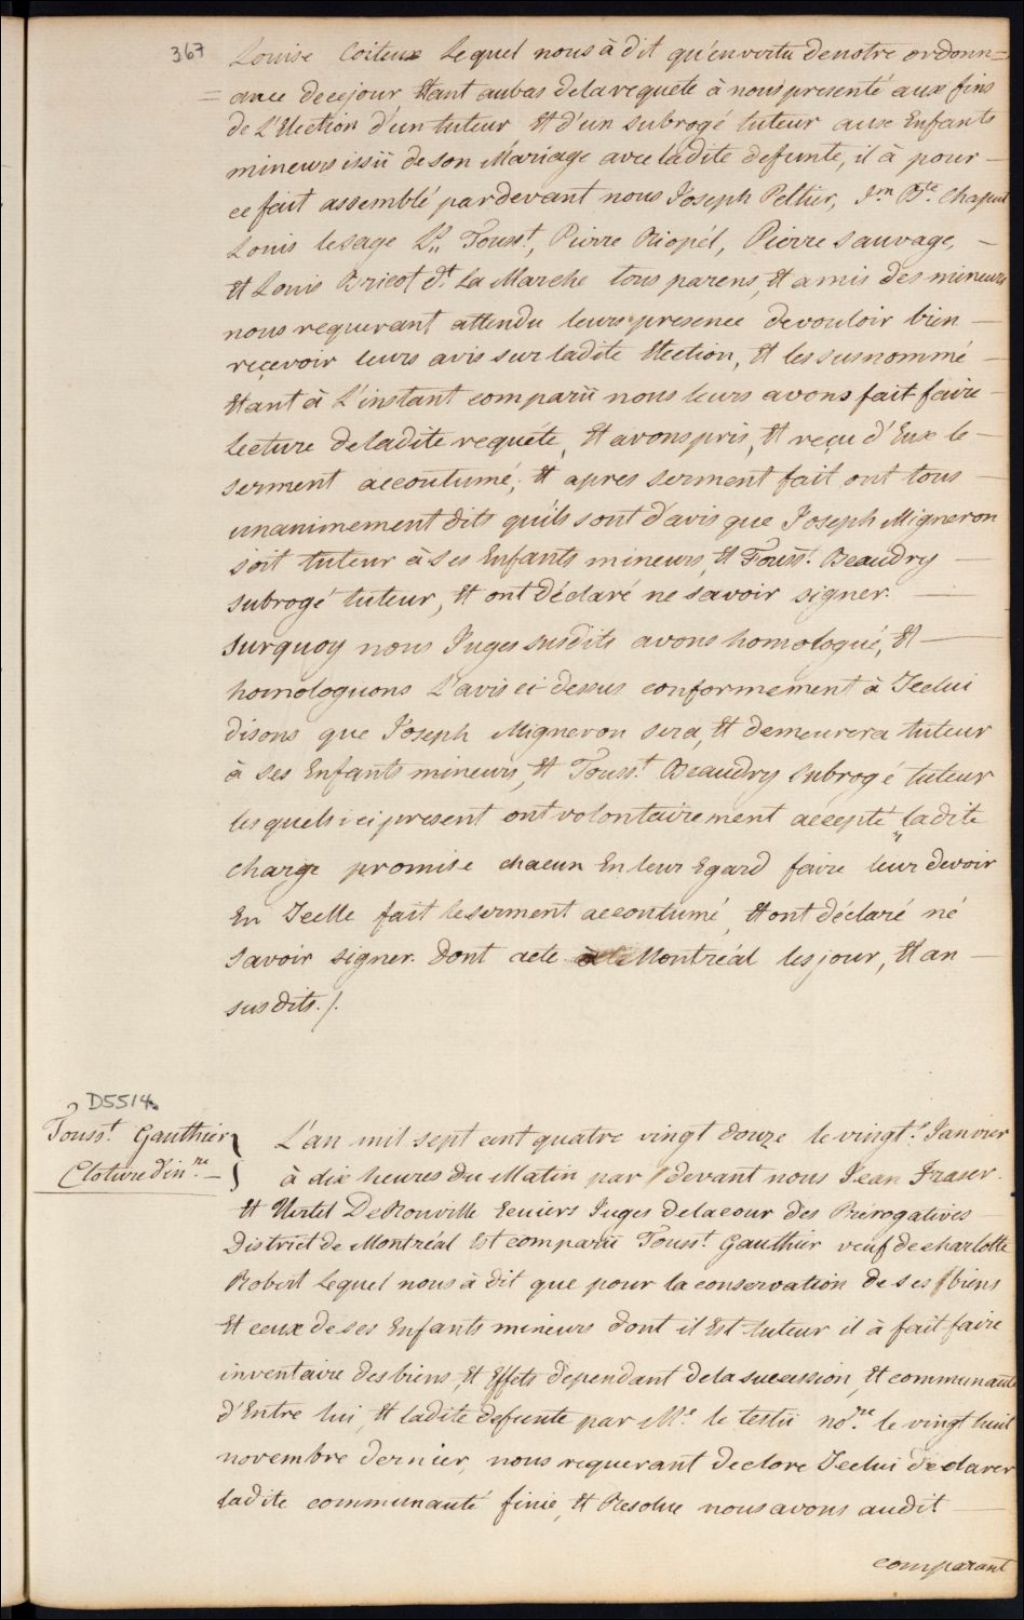 367 Louise Coiteux Lequel nous à dit qu'en vertu de notre ordonn=
=ance de ce jour Etant au bas de la requete à nous presenté aux fins
de L'Election d'un tuteur Et d'un subrogé tuteur aux Enfants
mineurs issü de son Mariage avec ladite defunte, il à pour —
ce fait assemblé pardevant nous Joseph Peltier, Jn Bte Chaput
Louis lesage Pre Tousst, Pierre Riopél, Pierre Sauvage, —
Et Louis Bricot dt La Marche tous parens, Et amis des mineurs
nous requerant attendu leurs presence de vouloir bien —
reçevoir leurs avis sur ladite Election, Et les susnommé —
Etant à L'instant comparü nous leurs avons fait faire —
lecture de ladite requête, Et avons pris, Et reçu d'Eux le —
serment accoutumé, Et apres serment fait ont tous —
unanimement dits qu'ils sont d'avis que Joseph Migneron
soit tuteur à ses Enfants mineurs, Et Tousst. Beaudry —
subrogé tuteur, Et ont déclaré ne savoir signer. —
Surquoy nous Juges susdits avons homologué, Et —
homologuons L'avis ci-dessus conformement à Icelui
disons que Joseph Migneron sera, Et demeurera tuteur
à ses Enfants mineurs, Et Tousst Beaudry subrogé tuteur
lesquels ici present ont volontairement accepté ladite
charge promise chacun En leur Egard faire leur devoir
En Icelle fait le serment accoutumé, Et ont déclaré né
savoir signer. Dont acte à Montréal les jour, Et an —
susdits./.
D5514.
Tousst Gauthier }
Cloture d'inre. — }
L'an mil sept cent quatre vingt douze le vingt Janvier
à dix heures du Matin par devant nous Jean Fraser.
Et Hertel DeRouville Ecuiers Juges de la cour des Prerogatives
District de Montréal Est comparü Tousst Gauthier veuf de charlotte
Robert Lequel nous à dit que pour la conservation de ses biens
Et ceux de ses Enfants mineurs dont il Est tuteur il à fait faire
inventaire des biens, Et Effets dependant de la succession, Et communauté
d'Entre lui, Et ladite defunte par Me le testü nore. le vingt huit
novembre dernier, nous requerant de clore Icelui declarer
ladite communauté finie, Et Resolue nous avons audit —
comparant